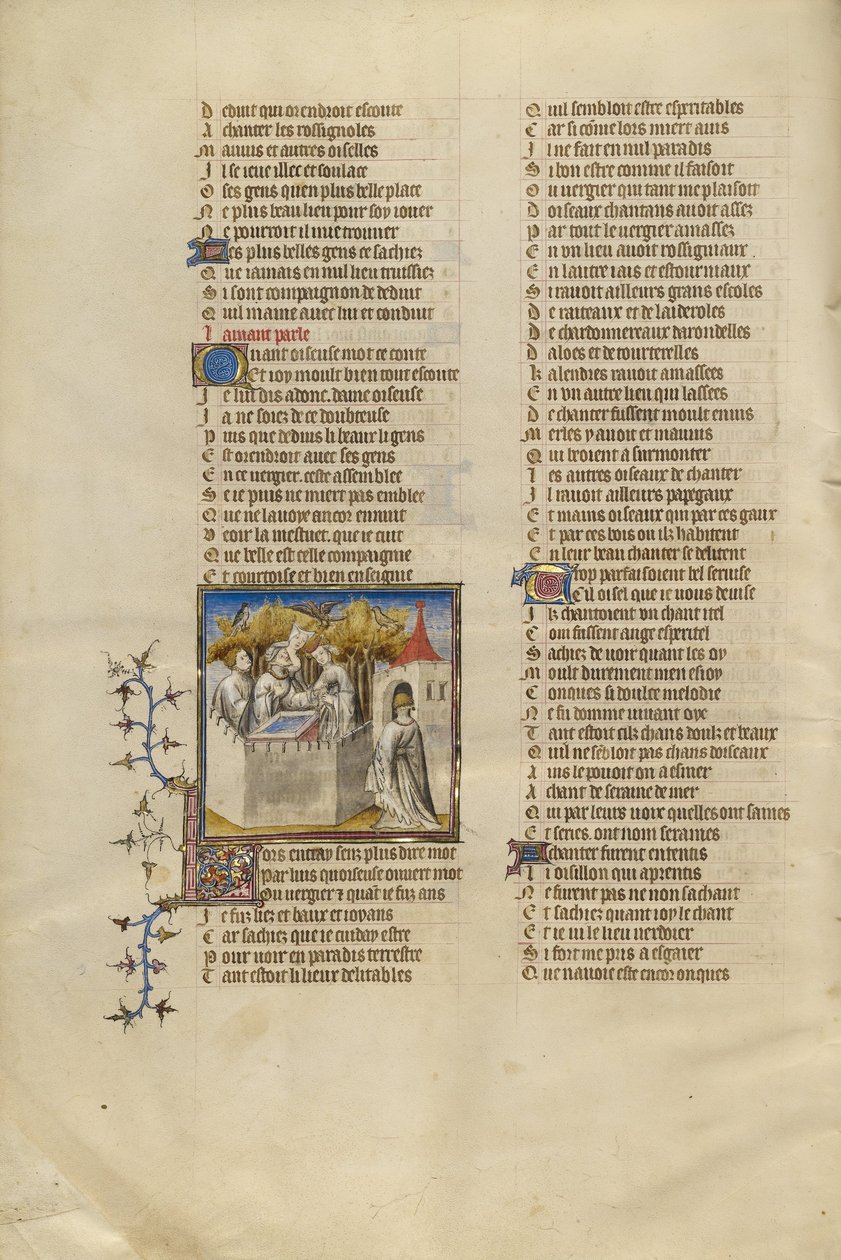 Deduit qui orendroit escoute
A chanter les rossignoles
Mauuis et autres oiselles
Il se ieue illec et soulace
O ses gens quen plus belle place
Ne plus beau lieu pour soy iouer
Ne pourroit il mie trouuer
Les plus belles gens ce sachiez
Que iamais en nul lieu truissiez
Si sont compaignon de deduit
Quil maine auec lui et conduit
lamant parle
Quant oiseuse mot ce conte
Et ioy moult bien tout escoute
Je lui dis adonc. dame oiseuse
Ja ne soiez de ce doubteuse
Puis que deduis li beaux li gens
Est orendroit auec ses gens
En ce uergier. ceste assemblee
Se ie puis ne miert pas emblee
Que ne la uoye encor ennuit
Veoir la mestuet. que ie cuit
Que belle est celle compaignie
Et courtoise et bien enseignie
Lors entray senz plus dire mot
Par luis quoiseuse ouuert mot
Ou uergier ⁊ quāt ie fuz ans
Je fuz liez et baux et ioyans
Car sachiez que ie cuiday estre
Pour uoir en paradis terrestre
Tant estoit li lieux delitables
Quil sembloit estre esperitables
Car si cōme lors miert auis
Il ne fait en nul paradis
Si bon estre comme il faisoit
Ou uergier qui tant me plaisoit
Doiseaux chantans auoit assez
Par tout le uergier amassez
En vn lieu auoit rossigniaux
En lautre iais et estourniaux
Si rauoit ailleurs grans escoles
De roiteaux et de laideroles
De chardonnereaux darondelles
Daloes et de tourterelles
Kalendres rauoit amassees
En vn autre lieu qui lassees
De chanter fussent moult enuis
Merles y auoit et mauuis
Qui beoient a surmonter
Les autres oiseaux de chanter
Il rauoit ailleurs papegaux
Et mains oiseaux qui par ces gaux
Et par ces bois ou ilz habitent
En leur beau chanter se delitent
Trop parfaisoient bel seruise
Cil oisel que ie uous deuise
Ilz chantoient vn chant itel
Com fussent ange esperitel
Sachiez de uoir quant les oy
Moult durement men esioy
Conques si doulce melodie
Ne fu domme uiuant oye
Tant estoit cilz chans doulz et beaux
Quil ne sēbloit pas chans doiseaux
Ains le pouoit on aesmer
A chant de seraine de mer
Qui par leurs uoix quelles ont saines
Et series. ont nom seraines
A chanter furent ententis
Li oisillon qui aprentis
Ne furent pas ne non sachant
Et sachiez quant ioy le chant
Et ie ui le lieu uerdoier
Si fort me pris a esgaier
Que nauoie este encor onques